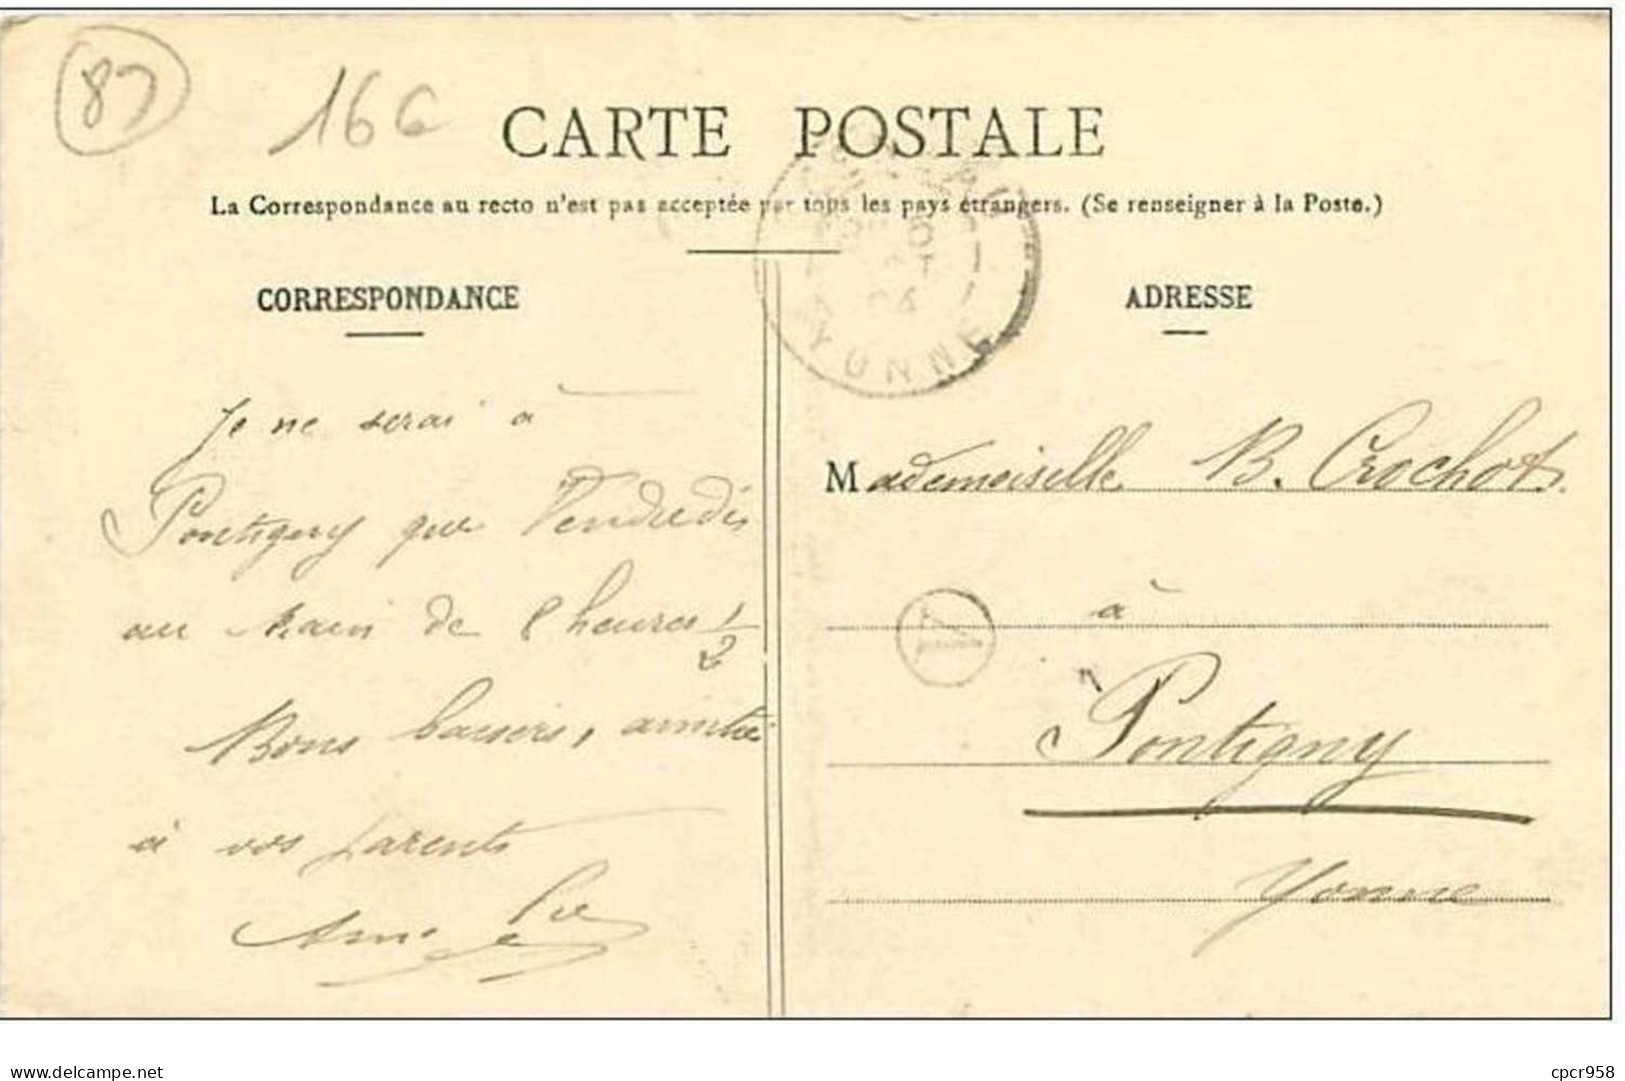 87
166
CARTE POSTALE
La Correspondance au recto n'est pas acceptée par tous les pays étrangers. (Se renseigner à la Poste.)
CORRESPONDANCE
ADRESSE
YONNE
04
Je ne serai à
Pontigny que Vendredi
au train de 8 heures 1/2
Bons baisers, amitiés
à vos parents
Mademoiselle B. Crochot
à
Pontigny
Yonne
www.delcampe.net
cpcr958